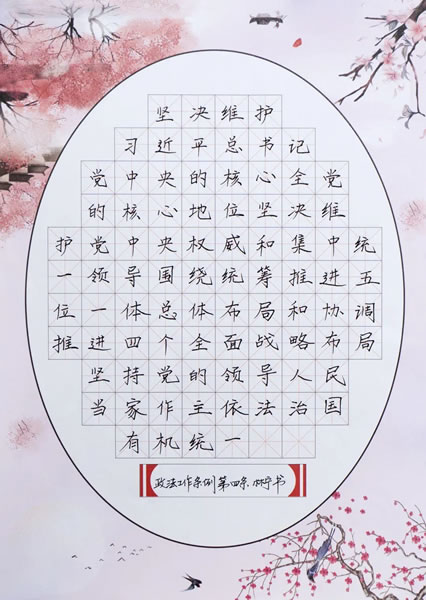 坚决维护
习近平总书记
党中央的核心全党
的核心地位坚决维
护党中央权威和集中统
一领导围绕统筹推进五
位一体总体布局和协调
推进四个全面战略布局
坚持党的领导人民
当家作主依法治国
有机统一
政法工作条例第四条